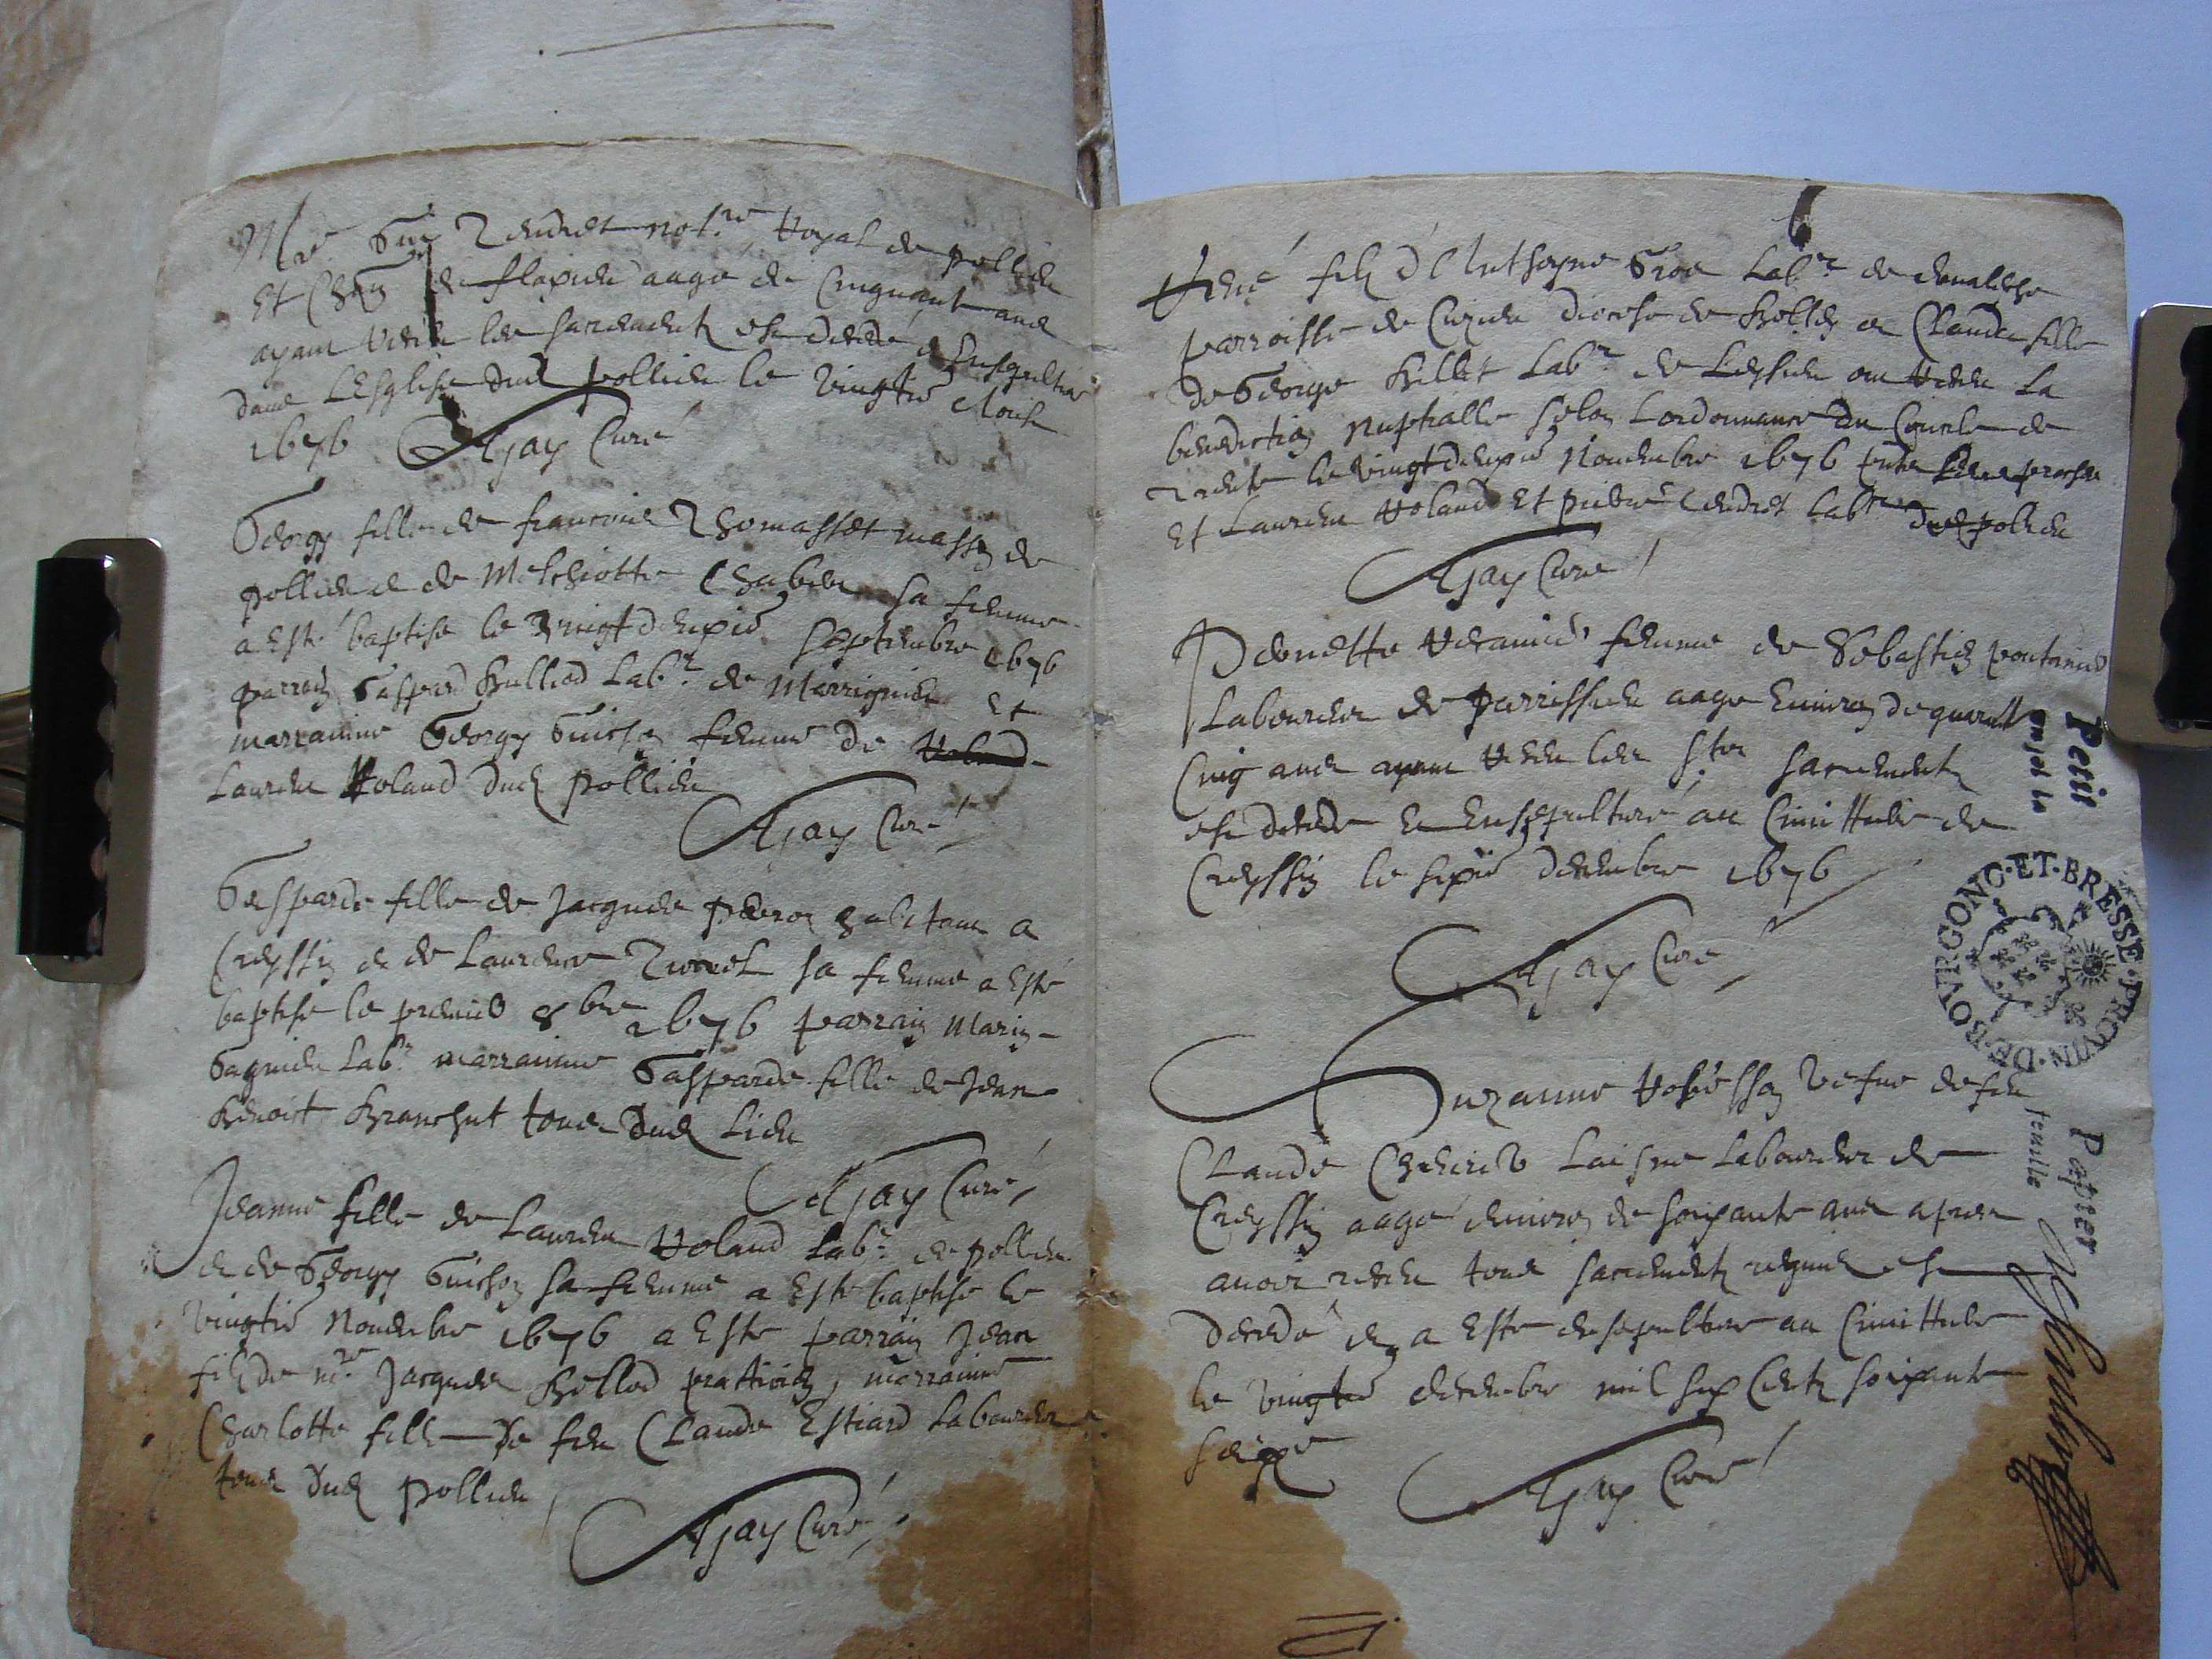 Me Guy Tendret not.re Royal de pollieu
Et Chan de flaxieu aage de Cinquant ans
ayant receu les sacrements est decedé, et Ensepulturé
dans LEsglise dud pollieu le vingtie
1676 AGay Curé
Georgy fille de francois Thomasset masson de
pollieu et de Melchiotte Chaber sa femme
a Esté baptisé le vingt deuxie septembre 1676
parrain Gaspard Billiod Labr de Marrignieu Et
marrainne Georgy Guichon femme de
Laurent Roland dud pollieu
AGay Curé
Gasparde fille de Jacques peron habitant a
Creyssin et de Laurence sa femme a Esté
baptisé le premier 8bre 1676 parrain Marin
Gagnieu Labr marrainne Gasparde fille de Jean
Benoist Branchut tous dud Lieu
AGay Curé
Jeanne fille de Laurent Roland Labr de pollieu
et de Georgy Guichon sa femme a Esté baptisé le
vingtie Novembre 1676 a Esté parrain Jean
filz de me Jacques Billiod pratticien, marrainne
Charlotte fille de feu Claude Estiard Laboureur
tous dud pollieu
AGay Curé
René filz d'Anthoyne Labr de
parroisse de Cuzieu diocese de Belley et Clauda fille
de George Billet Labr de Leyssieu ont receu La
benediction Nuptialle selon Lordonnance du Concile de
trente le vingt deuxie Novembre 1676
Et Laurent Roland Et pierre Tendret Labr dud pollieu
AGay Curé
Pernette femme de Sebastien
Laboureur de parrissieu aage Environ de quarente
Cinq ans ayant receu les Sts sacrements
est decedé Et Ensepulturé au Cimittiere de
Creyssin le sixie decembre 1676
AGay Curé
Suzanne vefve de feu
Claude Laisne Laboureur de
Creyssin aagé environ de soixante ans apres
avoir receu tous sacrements requis est
decedé et a Esté ensepulturé au Cimittiere
le vingtie decembre mil six Cents soixante
seize
AGay Curé
Petit
Papier
feuille
PROVIN·DE·BOVRGONG·ET·BRESSE